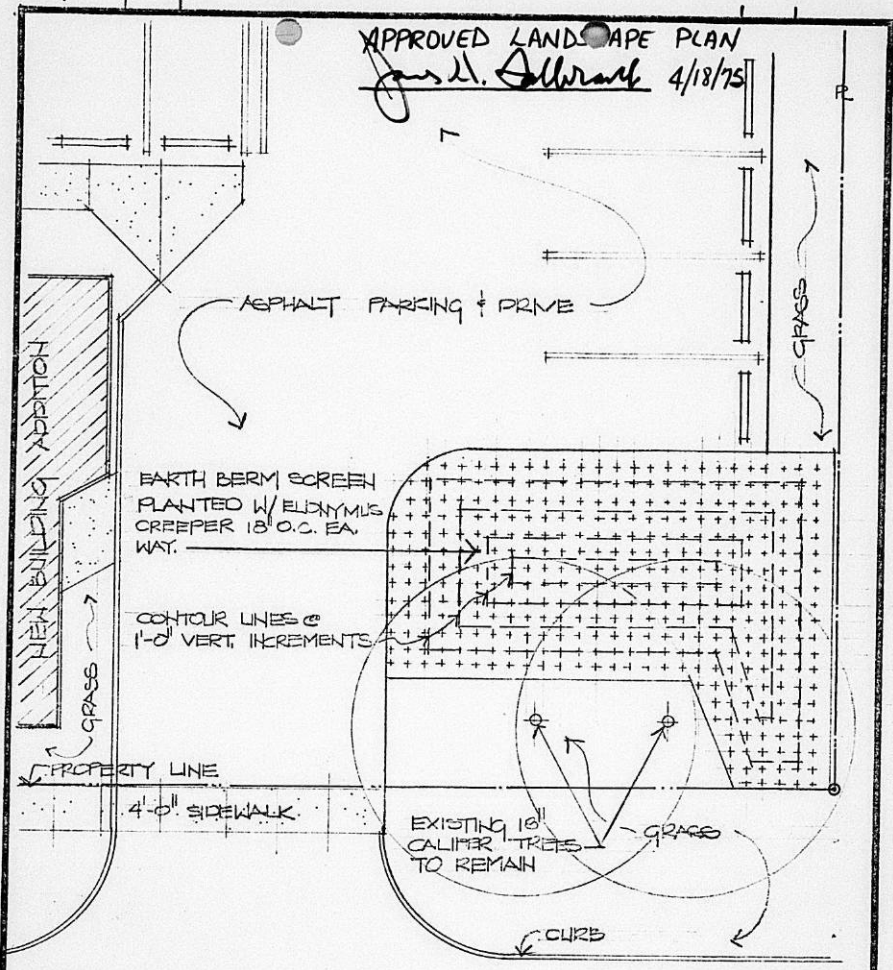 APPROVED LANDSCAPE PLAN
4/18/75
PL
ASPHALT PARKING & DRIVE
GRASS
NEW BUILDING ADDITION
EARTH BERM SCREEN
PLANTED W/ EUONYMUS
CREEPER 18" O.C. EA.
WAY.
CONTOUR LINES @
1'-0" VERT. INCREMENTS
GRASS
PROPERTY LINE
4'-0" SIDEWALK
EXISTING 18"
CALIPER TREES
TO REMAIN
GRASS
CURB